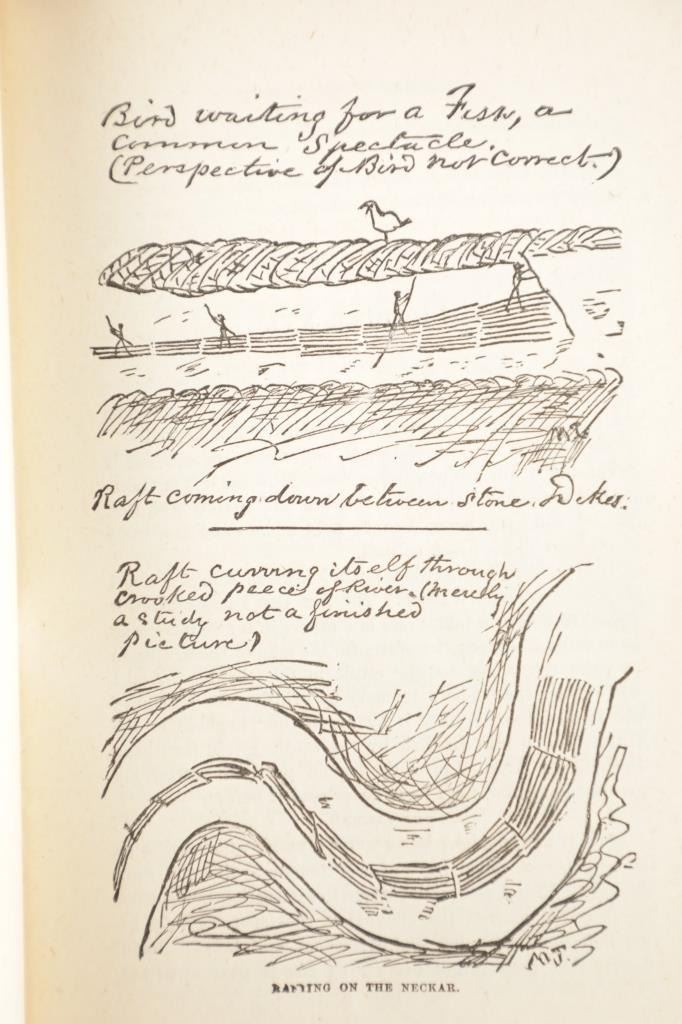 Bird waiting for a Fish, a
Common Spectacle.
(Perspective of Bird not correct.)
M.T.
Raft coming down between stone Dikes.
Raft curving itself through
crooked peece of River. (Merely
a study not a finished
picture)
M.T.
RAFTING ON THE NECKAR.